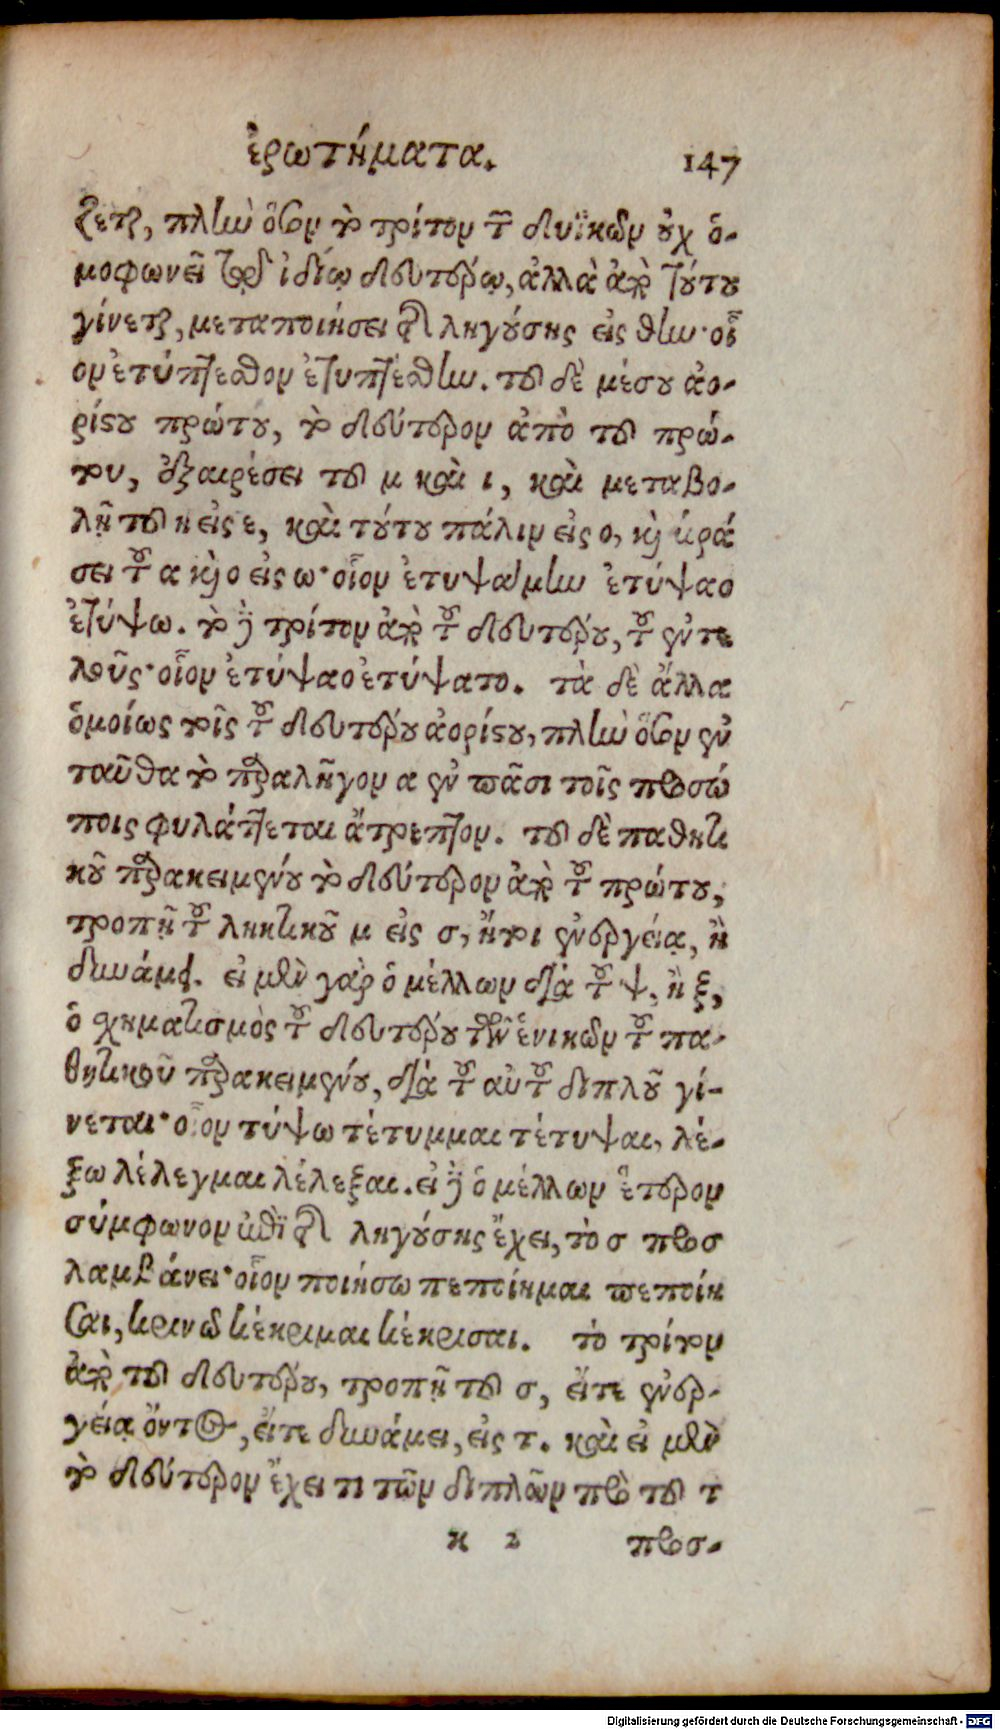 ἐρωτήματα. 147
ζεται, πλὴν ὅσον τὸ τρίτον τῶν δυϊκῶν οὐχ ὁ-
μοφωνεῖ τῷ ἰδίῳ δευτέρῳ, ἀλλὰ ἀπὸ τούτου
γίνεται, μεταποιήσει τῆς ληγούσης εἰς θην· οἷ
ον ἐτύπτεσθον ἐτυπτέσθην. τοῦ δὲ μέσου ἀο-
ρίστου πρώτου, τὸ δεύτερον ἀπὸ τοῦ πρώ-
του, ἐξαιρέσει τοῦ μ καὶ ι, καὶ μεταβο-
λῇ τοῦ η εἰς ε, καὶ τούτου πάλιν εἰς ο, καὶ κρά
σει τοῦ α καὶ ο εἰς ω· οἷον ἐτυψάμην ἐτύψαο
ἐτύψω. τὸ δὲ τρίτον ἀπὸ τοῦ δευτέρου, τοῦ ἐντε
λοῦς· οἷον ἐτύψαο ἐτύψατο. τὰ δὲ ἄλλα
ὁμοίως τοῖς τοῦ δευτέρου ἀορίστου, πλὴν ὅσον ἐν
ταῦθα τὸ παραλῆγον α ἐν πᾶσι τοῖς προσώ
ποις φυλάττεται ἄτρεπτον. τοῦ δὲ παθητι
κοῦ παρακειμένου τὸ δεύτερον ἀπὸ τοῦ πρώτου,
τροπῇ τοῦ ληκτικοῦ μ εἰς σ, ἤτοι ἐνεργείᾳ, ἢ
δυνάμει. εἰ μὲν γὰρ ὁ μέλλων διὰ τοῦ ψ, ἢ ξ,
ὁ σχηματισμὸς τοῦ δευτέρου τῶν ἑνικῶν τοῦ πα-
θητικοῦ παρακειμένου, διὰ τοῦ αὐτοῦ διπλοῦ γί-
νεται· οἷον τύψω τέτυμμαι τέτυψαι, λέ-
ξω λέλεγμαι λέλεξαι. εἰ δὲ ὁ μέλλων ἕτερον
σύμφωνον ἐπὶ τῆς ληγούσης ἔχει, τὸ σ προσ
λαμβάνει· οἷον ποιήσω πεποίημαι πεποίη
σαι, κρινῶ κέκριμαι κέκρισαι. τὸ τρίτον
ἀπὸ τοῦ δευτέρου, τροπῇ τοῦ σ, εἴτε ἐνερ-
γείᾳ ὄντος, εἴτε δυνάμει, εἰς τ. καὶ εἰ μὲν
τὸ δεύτερον ἔχει τι τῶν διπλῶν πρὸ τοῦ τ
κ 2 προσ-
Digitalisierung gefördert durch die Deutsche Forschungsgemeinschaft - DFG